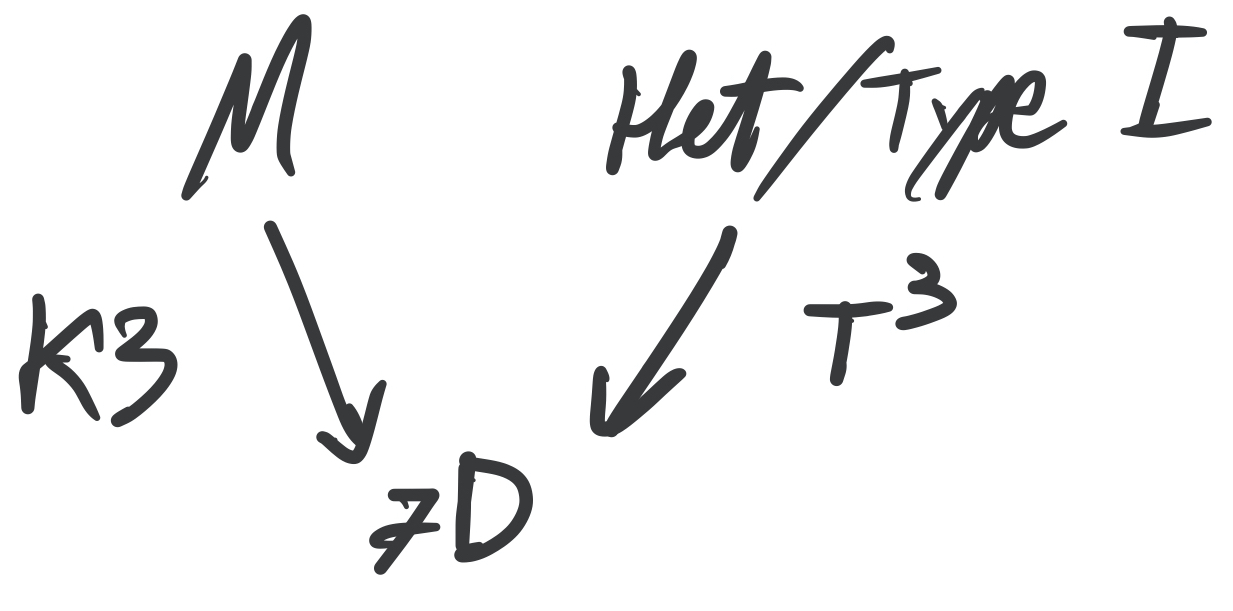 M Het/Type I
K3 T³
7D